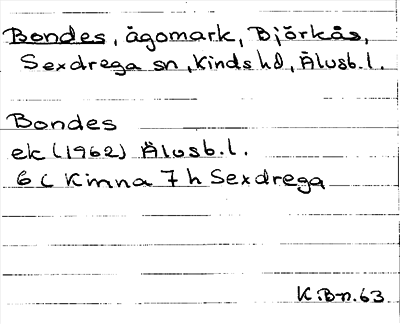 Bondes, ägomark, Björkås,
Sexdrega sn, Kinds hd, Älvsb.l.
Bondes
ek (1962) Älvsb.l.
6 C Kinna 7 h Sexdrega
K.B-n.63